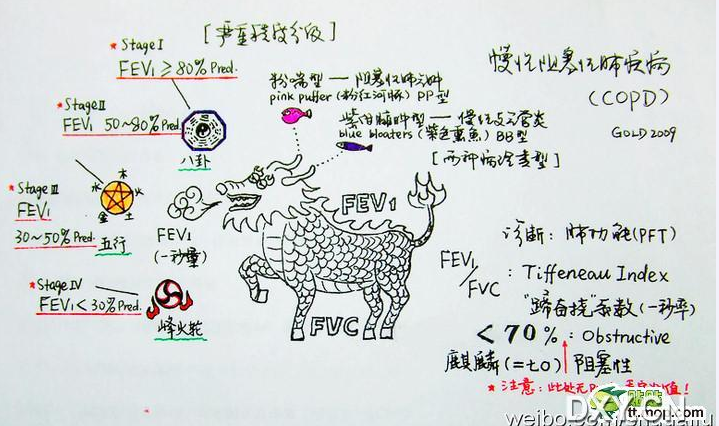 [严重程度分级]
* Stage I
FEV1 ≥ 80% Pred.
* Stage II
FEV1 50~80% Pred.
八卦
* Stage III
FEV1
30~50% Pred.
木
火
土
金
水
五行
* Stage IV
FEV1 < 30% Pred.
烽火轮
FEV1
(一秒量)
粉喘型 — 阻塞性肺气肿
pink puffer (粉红河豚) PP型
紫绀臃肿型 — 慢性支气管炎
blue bloaters (紫色熏鱼) BB型
[两种病理类型]
慢性阻塞性肺疾病
(COPD)
GOLD 2009
FEV1
FVC
诊断: 肺功能(PFT)
FEV1/FVC : Tiffeneau Index
"蹄奋挠"系数 (一秒率)
< 70% : Obstructive
麒麟 (=t0) 阻塞性
* 注意: 此处无
值!
DXY.CN
tt.mop.com
weibo.com/